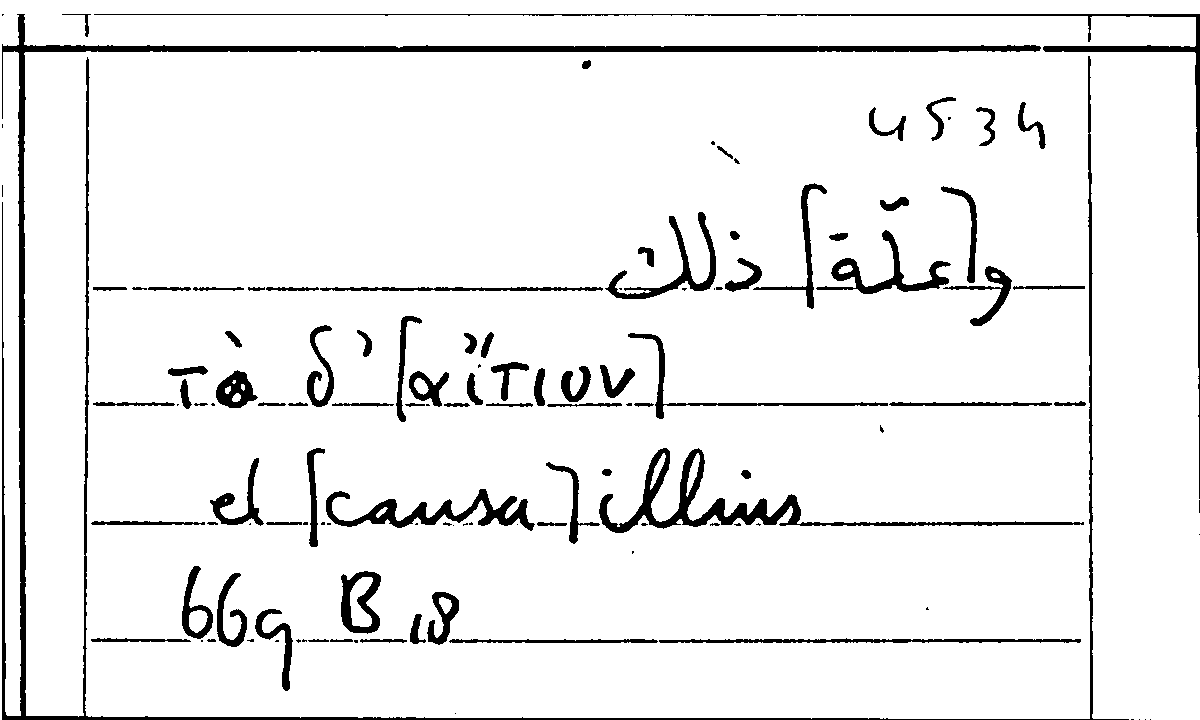 4534
و[علّة] ذلك
τὸ δ' [αἴτιον]
et [causa] illius
669 B 18